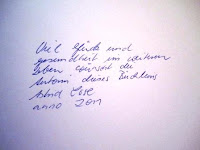 Viel Freude und
Gesundheit im weiteren
Leben wünscht die
Autorin dieses Büchleins
Astrid Rose
anno 2011